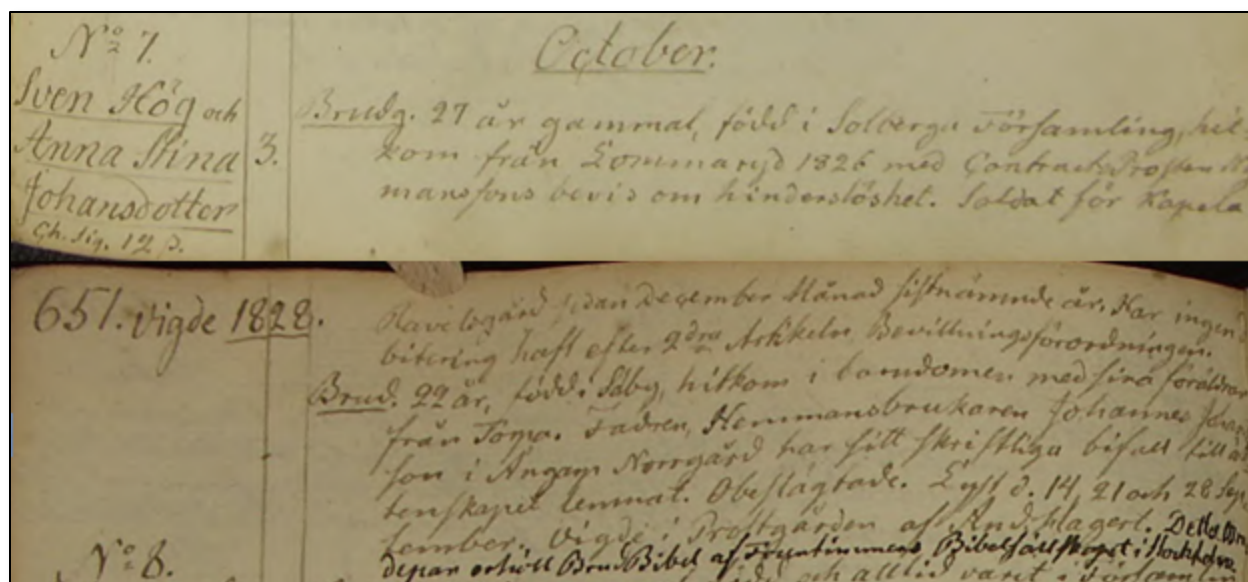 No 7.
Sven Hög och
Anna Stina
Johansdotter
Ch. Sig. 12 s.
3.
October.
Brudg. 27 år gammal, född i Solberga Församling, hit-
kom från Lommaryd 1826 med ContractsProsten
mansons bevis om hinderslöshet. Soldat för Kapela
651. Vigde 1828.
sedan December Månad sistnämnde år. Har ingen
bitering haft efter 2dra Artikeln Bevillningsförordningen.
Brud. 22 år, född i Säby, hitkom i barndomen med sina föräldrar
från Fadren, Hemmansbrukaren Johannes
son i Norrgård har sitt skriftliga bifall till
tenskapet lemnat. Obeslägtade. Lyst d. 14, 21 och 28 Sep-
tember. Vigde i Prostgården af And. Detta
depar erhöll BrudBibel af Fruntimmers Bibelsällskapet i Stockholm.
No 8.
och alltid varit i